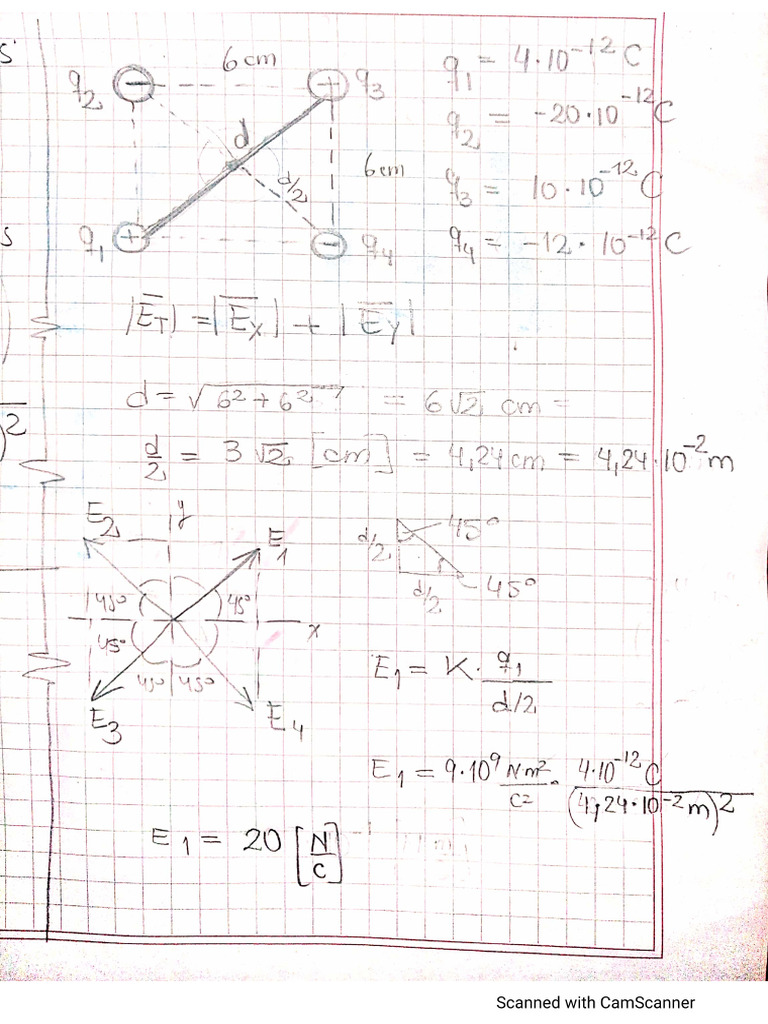 6 cm
q₂ − + q₃
d
d/2
6 cm
q₁ + − q₄
q₁ = 4·10⁻¹² C
q₂ = -20·10⁻¹² C
q₃ = 10·10⁻¹² C
q₄ = -12·10⁻¹² C
|E̅T| = |E̅x| + |E̅y|
d = √(6² + 6²) = 6√2 cm =
d/2 = 3√2 [cm] = 4,24 cm = 4,24·10⁻² m
E₂ y E₁
45° 45°
x
45°
45° 45°
E₃ E₄
d/2 45°
d/2 45°
E₁ = K · q₁ / d/2
E₁ = 9·10⁹ Nm²/C² · 4·10⁻¹² C / (4,24·10⁻² m)²
E₁ = 20 [N/C]
Scanned with CamScanner